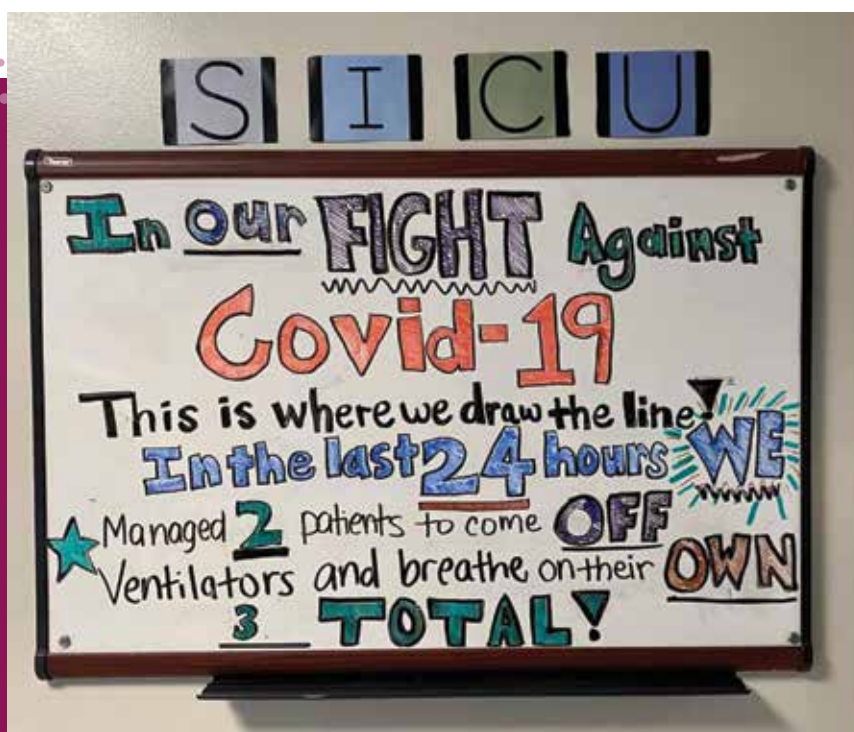 SICU
In our FIGHT Against
Covid-19
This is where we draw the line!
In the last 24 hours WE
Managed 2 patients to come OFF
Ventilators and breathe on their OWN
3 TOTAL!